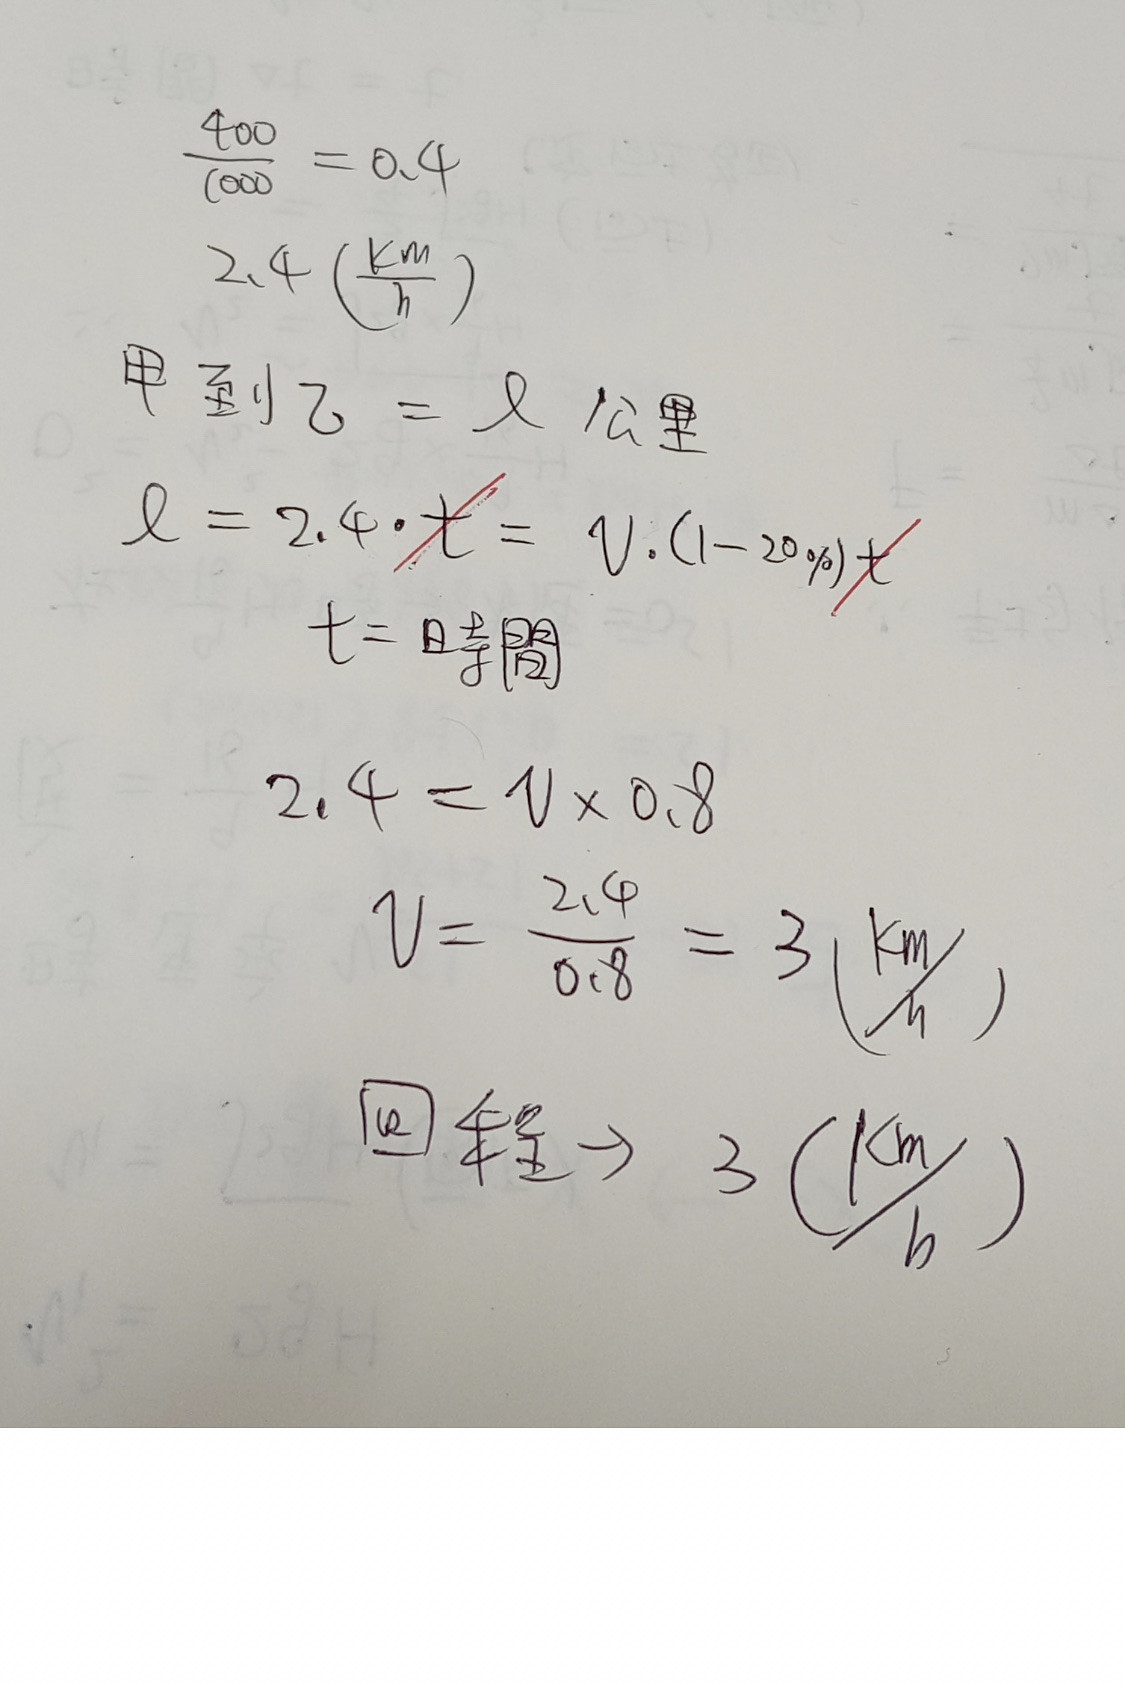 400/1000 = 0.4
2.4 (km/h)
甲到乙 = l 公里
l = 2.4 · t = v · (1 - 20%) t
t = 時間
2.4 = v × 0.8
v = 2.4/0.8 = 3 (km/h)
回程 → 3 (km/h)